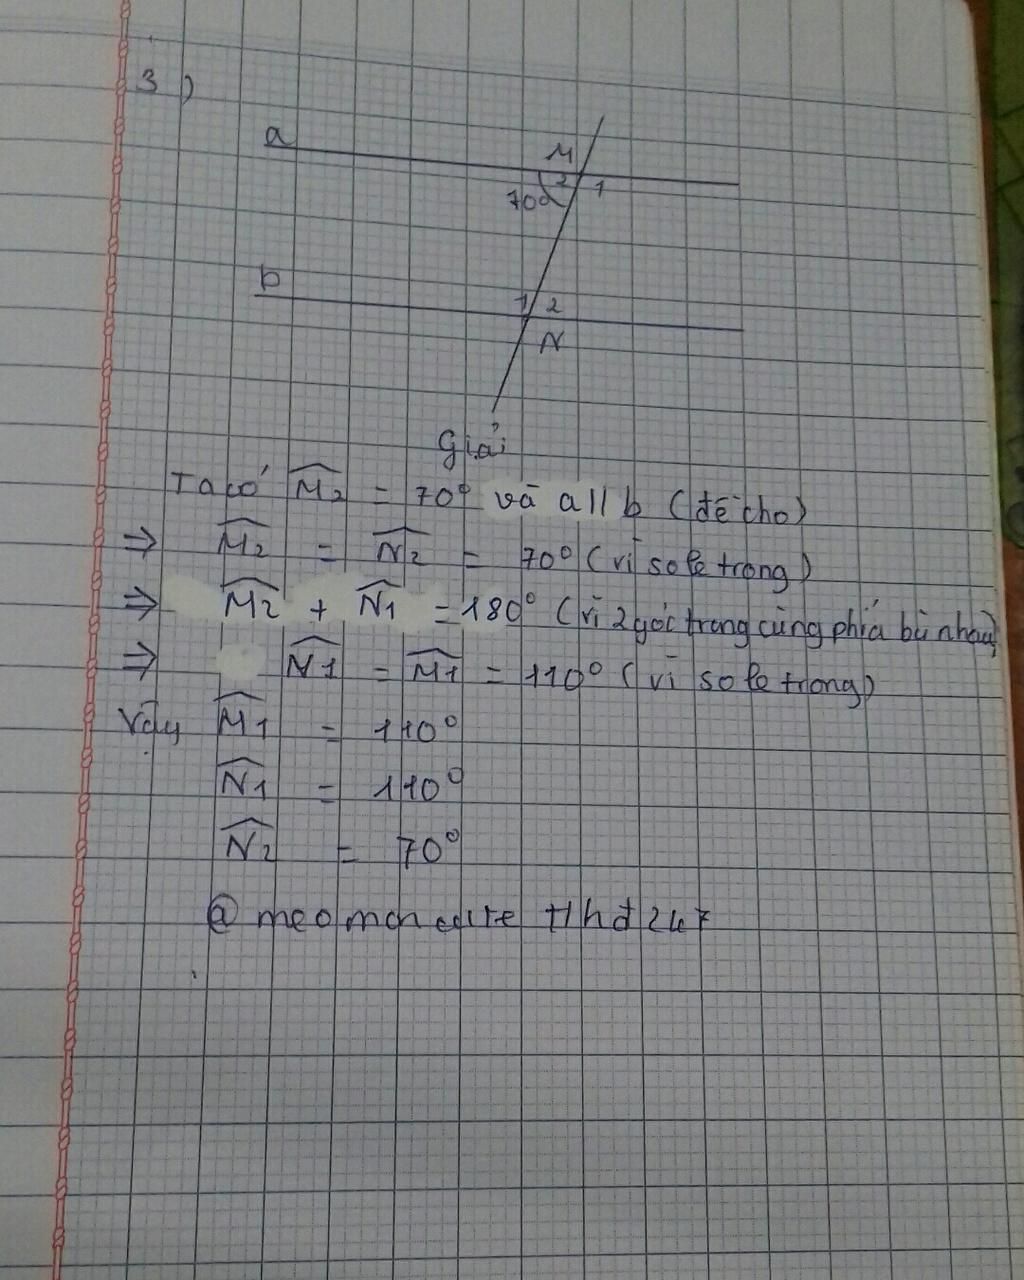 3)
a
M
2 1
70°
b
1 2
N
Giải
Ta có M̂₂ = 70° và a // b (đề cho)
=> M̂₂ = N̂₂ = 70° (vì so le trong)
=> M̂₂ + N̂₁ = 180° (vì 2 góc trong cùng phía bù nhau)
=> N̂₁ = M̂₁ = 110° (vì so le trong)
Vậy M̂₁ = 110°
N̂₁ = 110°
N̂₂ = 70°
@ meo hđ247